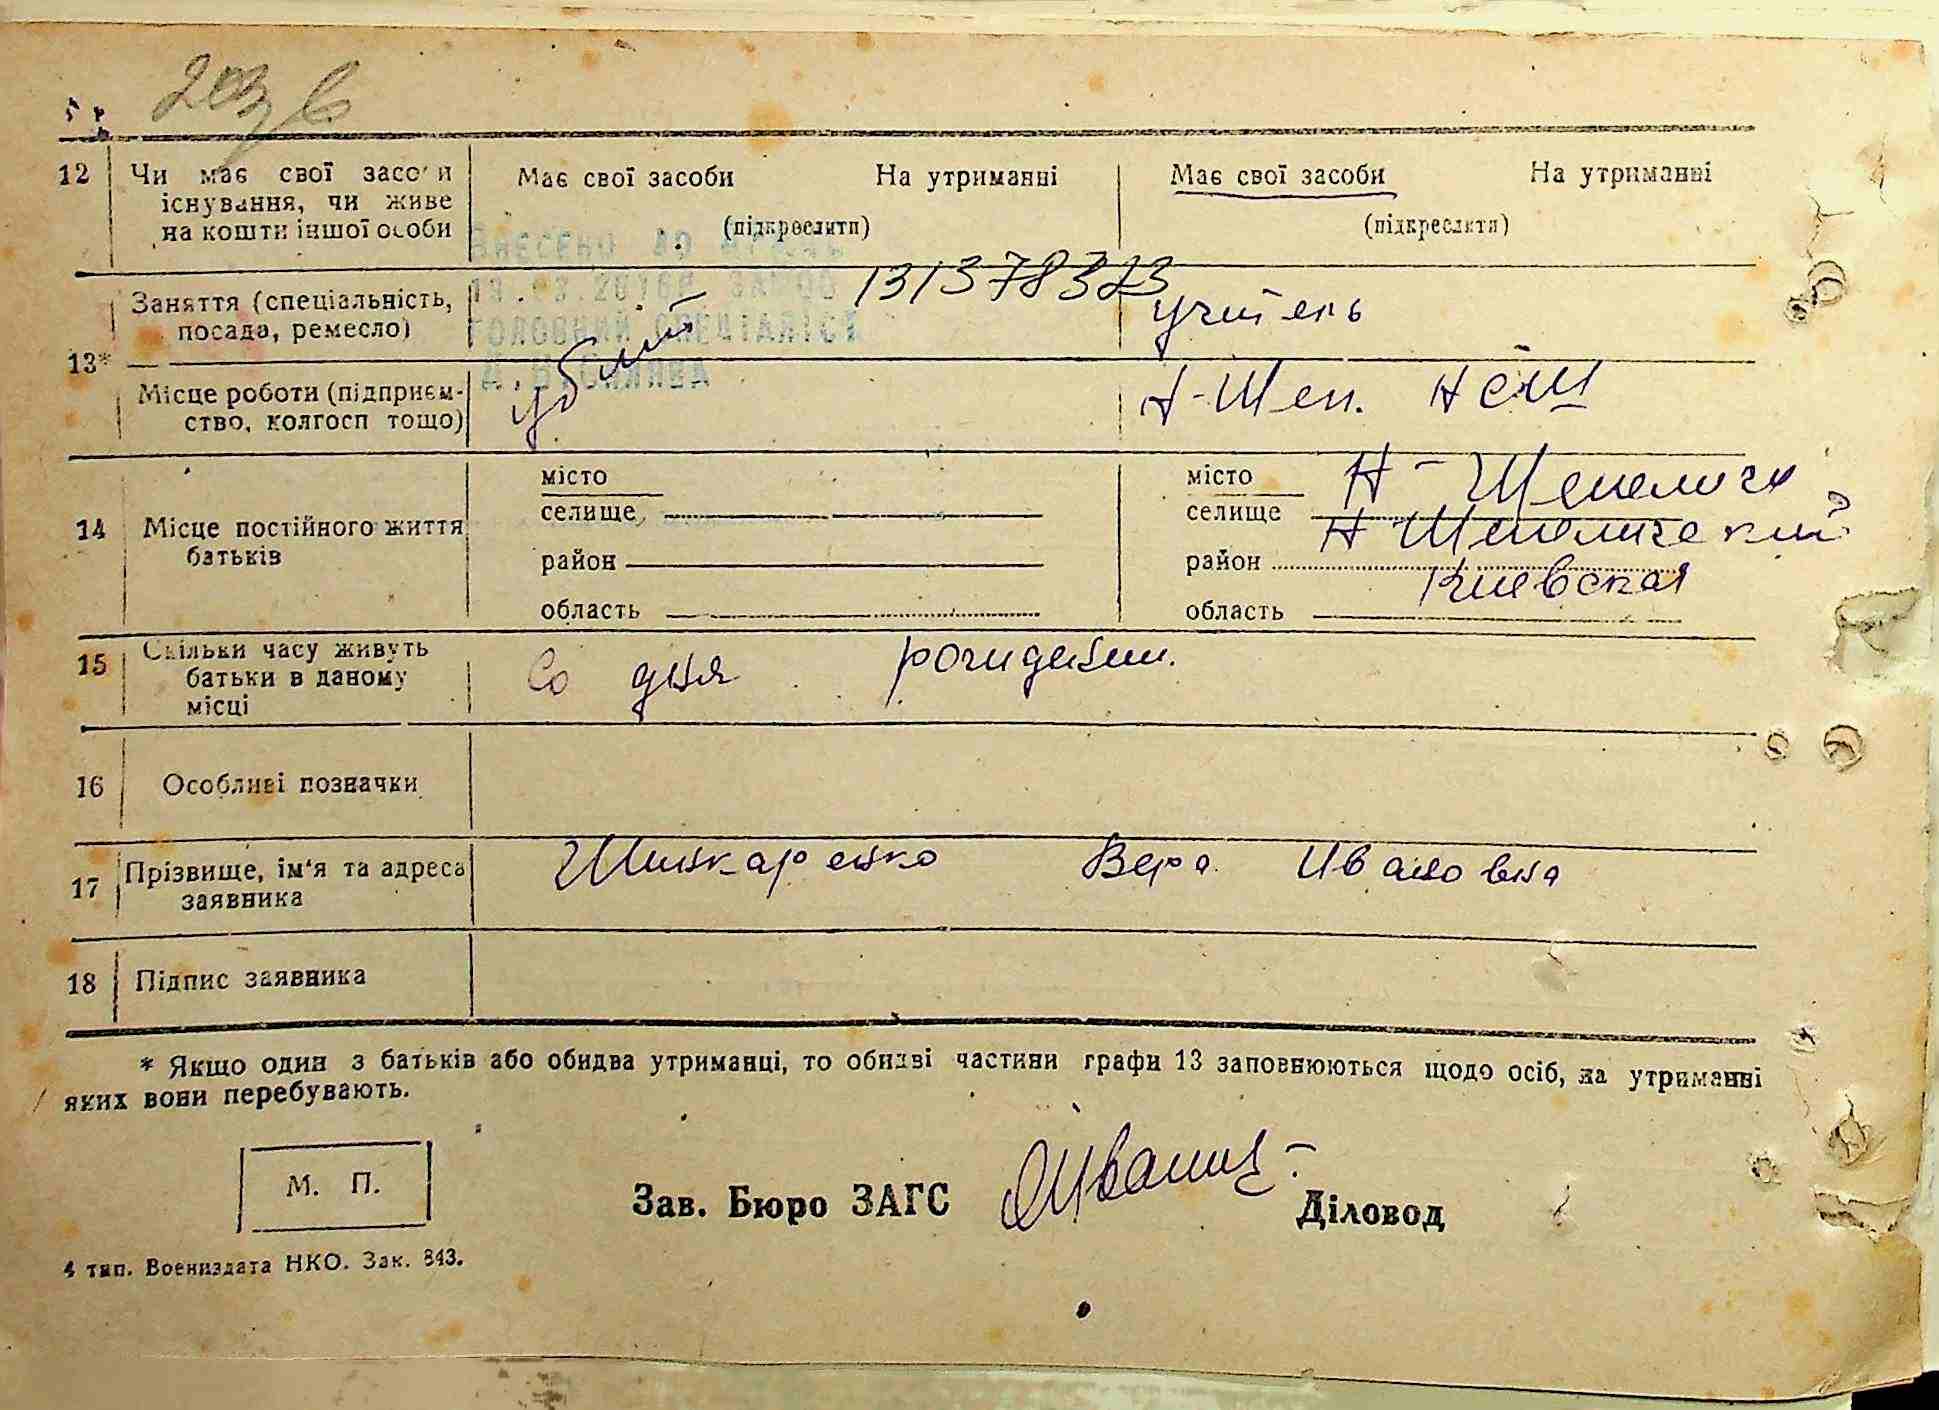 203 в
12 Чи має свої засоби Має свої засоби На утриманні Має свої засоби На утриманні
існування, чи живе
на кошти іншої особи (підкреслити) (підкреслити)
ВНЕСЕНО ДО
131378323
Заняття (спеціальність, учитель
посада, ремесло)
ГОЛОВНИЙ СПЕЦІАЛІСТ
13*
убит
Місце роботи (підприєм- Н-Шеп. НСШ
ство, колгосп тощо)
місто місто Н-Шепеличи
селище селище
14 Місце постійного життя Н Шепеличский
батьків район район
Киевская
область область
15 Скільки часу живуть Со дня рождения.
батьки в даному
місці
16 Особливі позначки
17 Прізвище, ім'я та адреса Шинкаренко Вера Ивановна
заявника
18 Підпис заявника
* Якщо один з батьків або обидва утриманці, то обидві частини графи 13 заповнюються щодо осіб, на утриманні
яких вони перебувають.
М. П.
Зав. Бюро ЗАГС Діловод
4 тип. Воениздата НКО. Зак. 843.